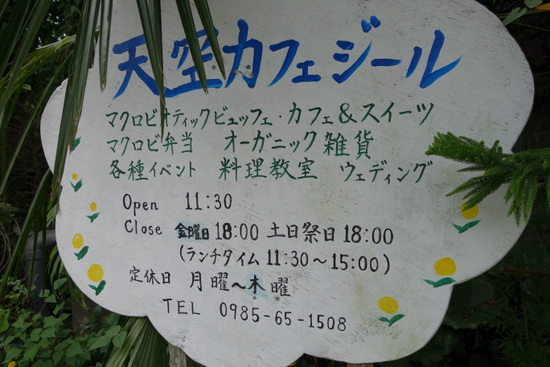 天空カフェジール
マクロビオティックビュッフェ・カフェ&スイーツ
マクロビ弁当 オーガニック雑貨
各種イベント 料理教室 ウェディング
Open 11:30
Close 金曜日 18:00 土日祭日 18:00
(ランチタイム 11:30～15:00)
定休日 月曜～木曜
TEL 0985-65-1508